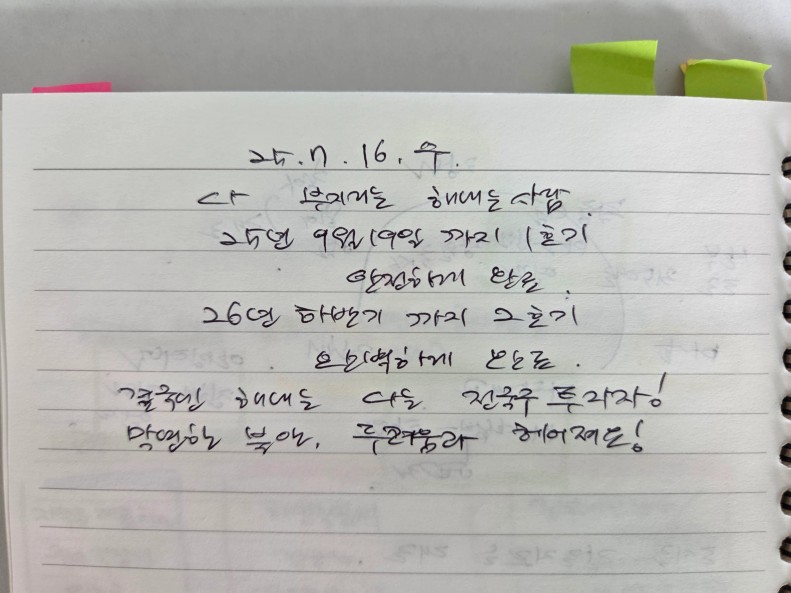 25. 7. 16. 수.
나 부지런은 해내는 사람.
25년 9월 19일 까지 1호기
안전하게 완료.
26년 하반기 까지 2호기
완벽하게 완료.
결국엔 해내는 나는 전국구 투자자!
막연한 불안, 두려움과 헤어져요!